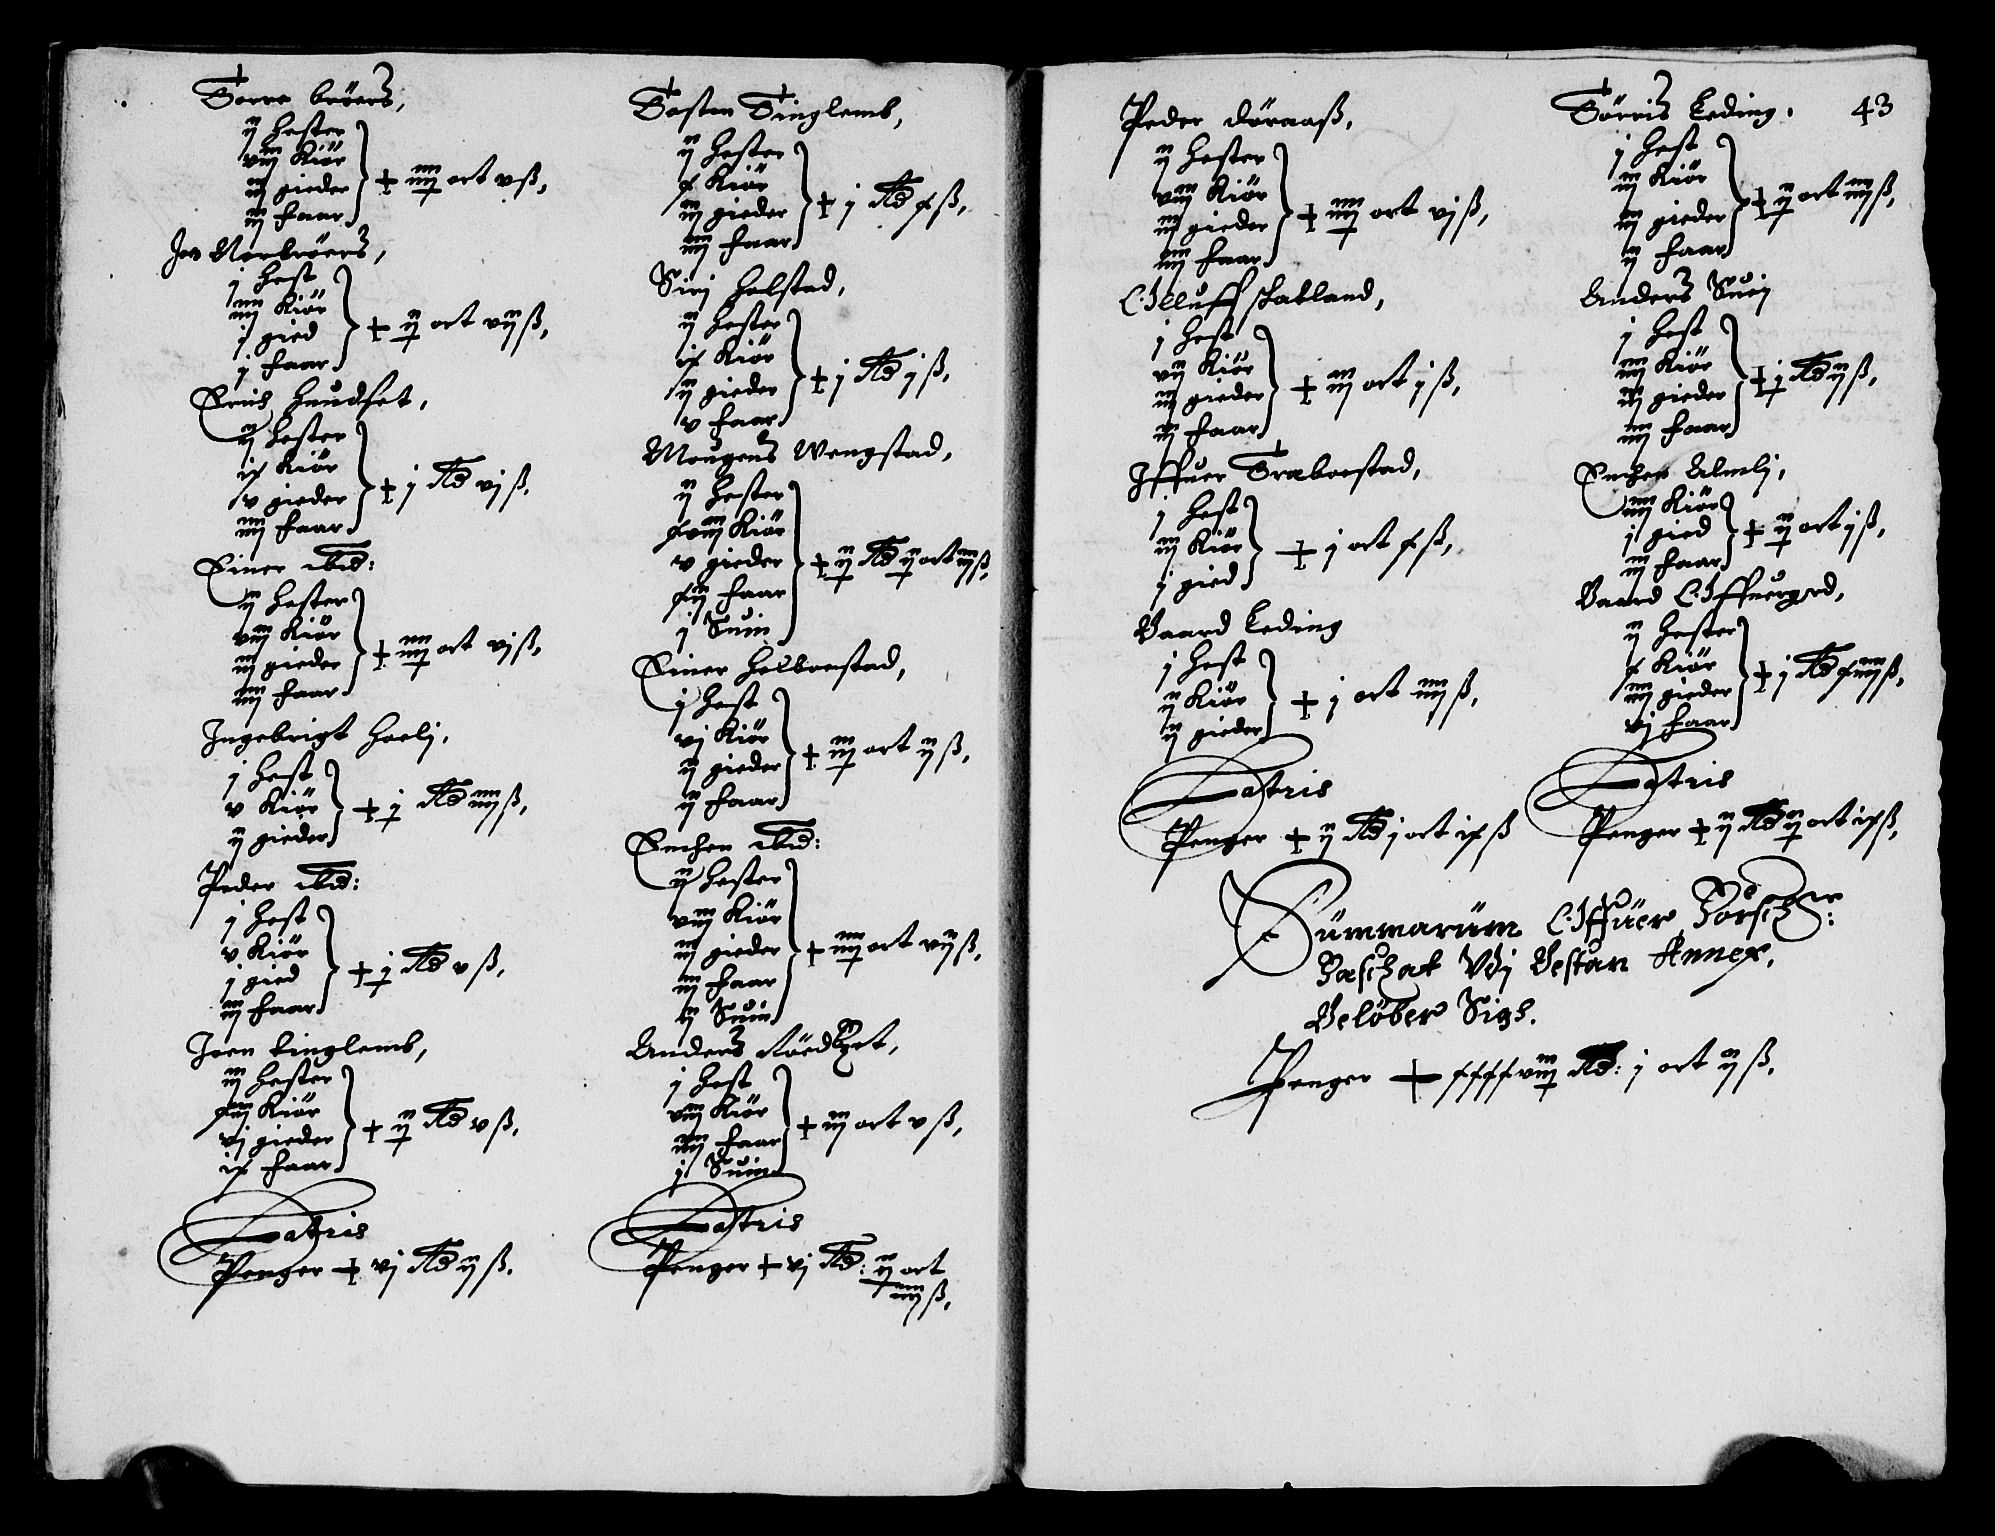 Torre bröers,
ij hester
viij Kiör
iij gieder
iij faar
+ iiij ort v ß,
Jon Norbröers,
j hest
iiij Kiör
j gied
j faar
+ ij ort vij ß,
ij hester
ix Kiör
v gieder
iiij faar
+ j Rd vj ß,
Einer ibid:
ij hester
viij Kiör
iij gieder
iiij faar
+ iiij ort vj ß,
Ingebrigt Hoelj,
j hest
v Kiör
ij gieder
+ j Rd iiij ß,
Peder ibid:
j hest
v Kiör
j gied
iij faar
+ j Rd v ß,
Joen tinglemb,
iij hester
xiij Kiör
vj gieder
ix faar
+ ij Rd v ß,
Latris
Penger + vj Rd ij ß.
Tosten Tinglemb,
ij hester
x Kiör
iij gieder
iiij faar
+ j Rd x ß,
Sirj holstad,
ij hester
ix Kiör
ij gieder
v faar
+ j Rd j ß,
Mougens Wengstad,
ij hester
xviij Kiör
v gieder
xij faar
j Suin
+ ij Rd ij ort iiij ß,
Einer Holboestad,
j hest
vj Kiör
ij gieder
ij faar
+ iij ort ij ß,
Enchen ibid:
ij hester
viij Kiör
iij gieder
iij faar
ij Suin
+ iiij ort vij ß,
Anders
j hest
viij Kiör
iiij faar
j Suin
+ iij ort v ß,
Latris
Penger + vj Rd: ij ort
iiij ß,
Peder döraaß,
ij hester
viij Kiör
iij gieder
iiij faar
+ iiij ort vj ß,
Olluff skatland,
j hest
vij Kiör
iij gieder
iij faar
+ iij ort j ß,
Iffuer Traboestad,
j hest
iij Kiör
j gied
+ j ort x ß,
Baard Leding
j hest
ij Kiör
ij gieder
+ j ort iiij ß,
Latris
Penger + ij Rd j ort ix ß
43
Törris Leding.
j hest
iij Kiör
iij gieder
ij faar
+ ij ort iiij ß,
Anders Suej
j hest
iiij Kiör
iij gieder
iiij faar
+ j Rd ij ß,
Enchen Almlj,
iiij Kiör
j gied
iij faar
+ ij ort j ß,
Baard Offuergrd,
ij hester
x Kiör
iiij gieder
vj faar
+ j Rd xiiij ß,
Latris
Penger + ij Rd ij ort ix ß,
Summarum Offuer
Annex,
Belöber Sigh.
Penger + xxxxviij Rd: j ort ij ß.